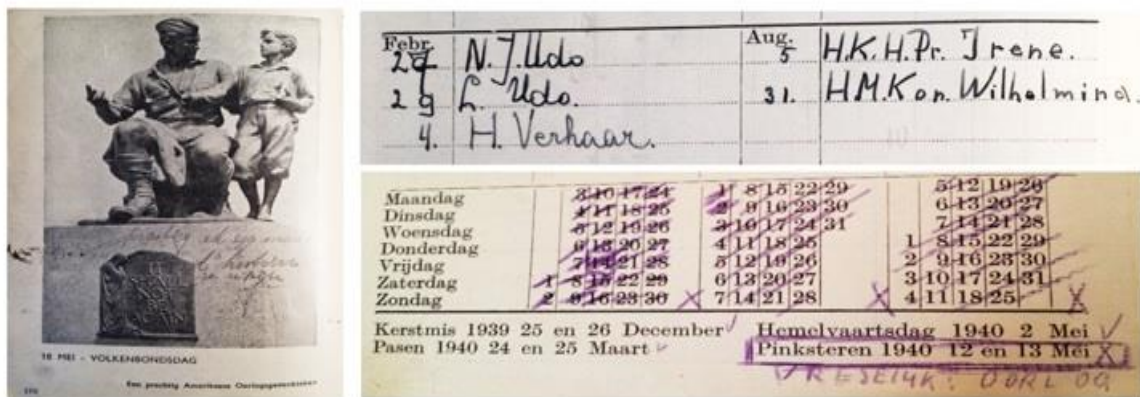 18 MEI - VOLKENBONDSDAG
Een prachtig Amerikaans Oorlogsgedenkteeken
Febr. Aug.
27 N.J. Udo 5 H.K.H.Pr. Irene.
29 L. Udo. 31. H.M.Kon. Wilhelmina.
4. H. Verhaar.
Maandag 3 10 17 24 1 8 15 22 29 5 12 19 26
Dinsdag 4 11 18 25 2 9 16 23 30 6 13 20 27
Woensdag 5 12 19 26 3 10 17 24 31 7 14 21 28
Donderdag 6 13 20 27 4 11 18 25 1 8 15 22 29
Vrijdag 7 14 21 28 5 12 19 26 2 9 16 23 30
Zaterdag 1 8 15 22 29 6 13 20 27 3 10 17 24 31
Zondag 2 9 16 23 30 7 14 21 28 4 11 18 25
Kerstmis 1939 25 en 26 December Hemelvaartsdag 1940 2 Mei
Pasen 1940 24 en 25 Maart Pinksteren 1940 12 en 13 Mei
VRESELIJK: OORLOG